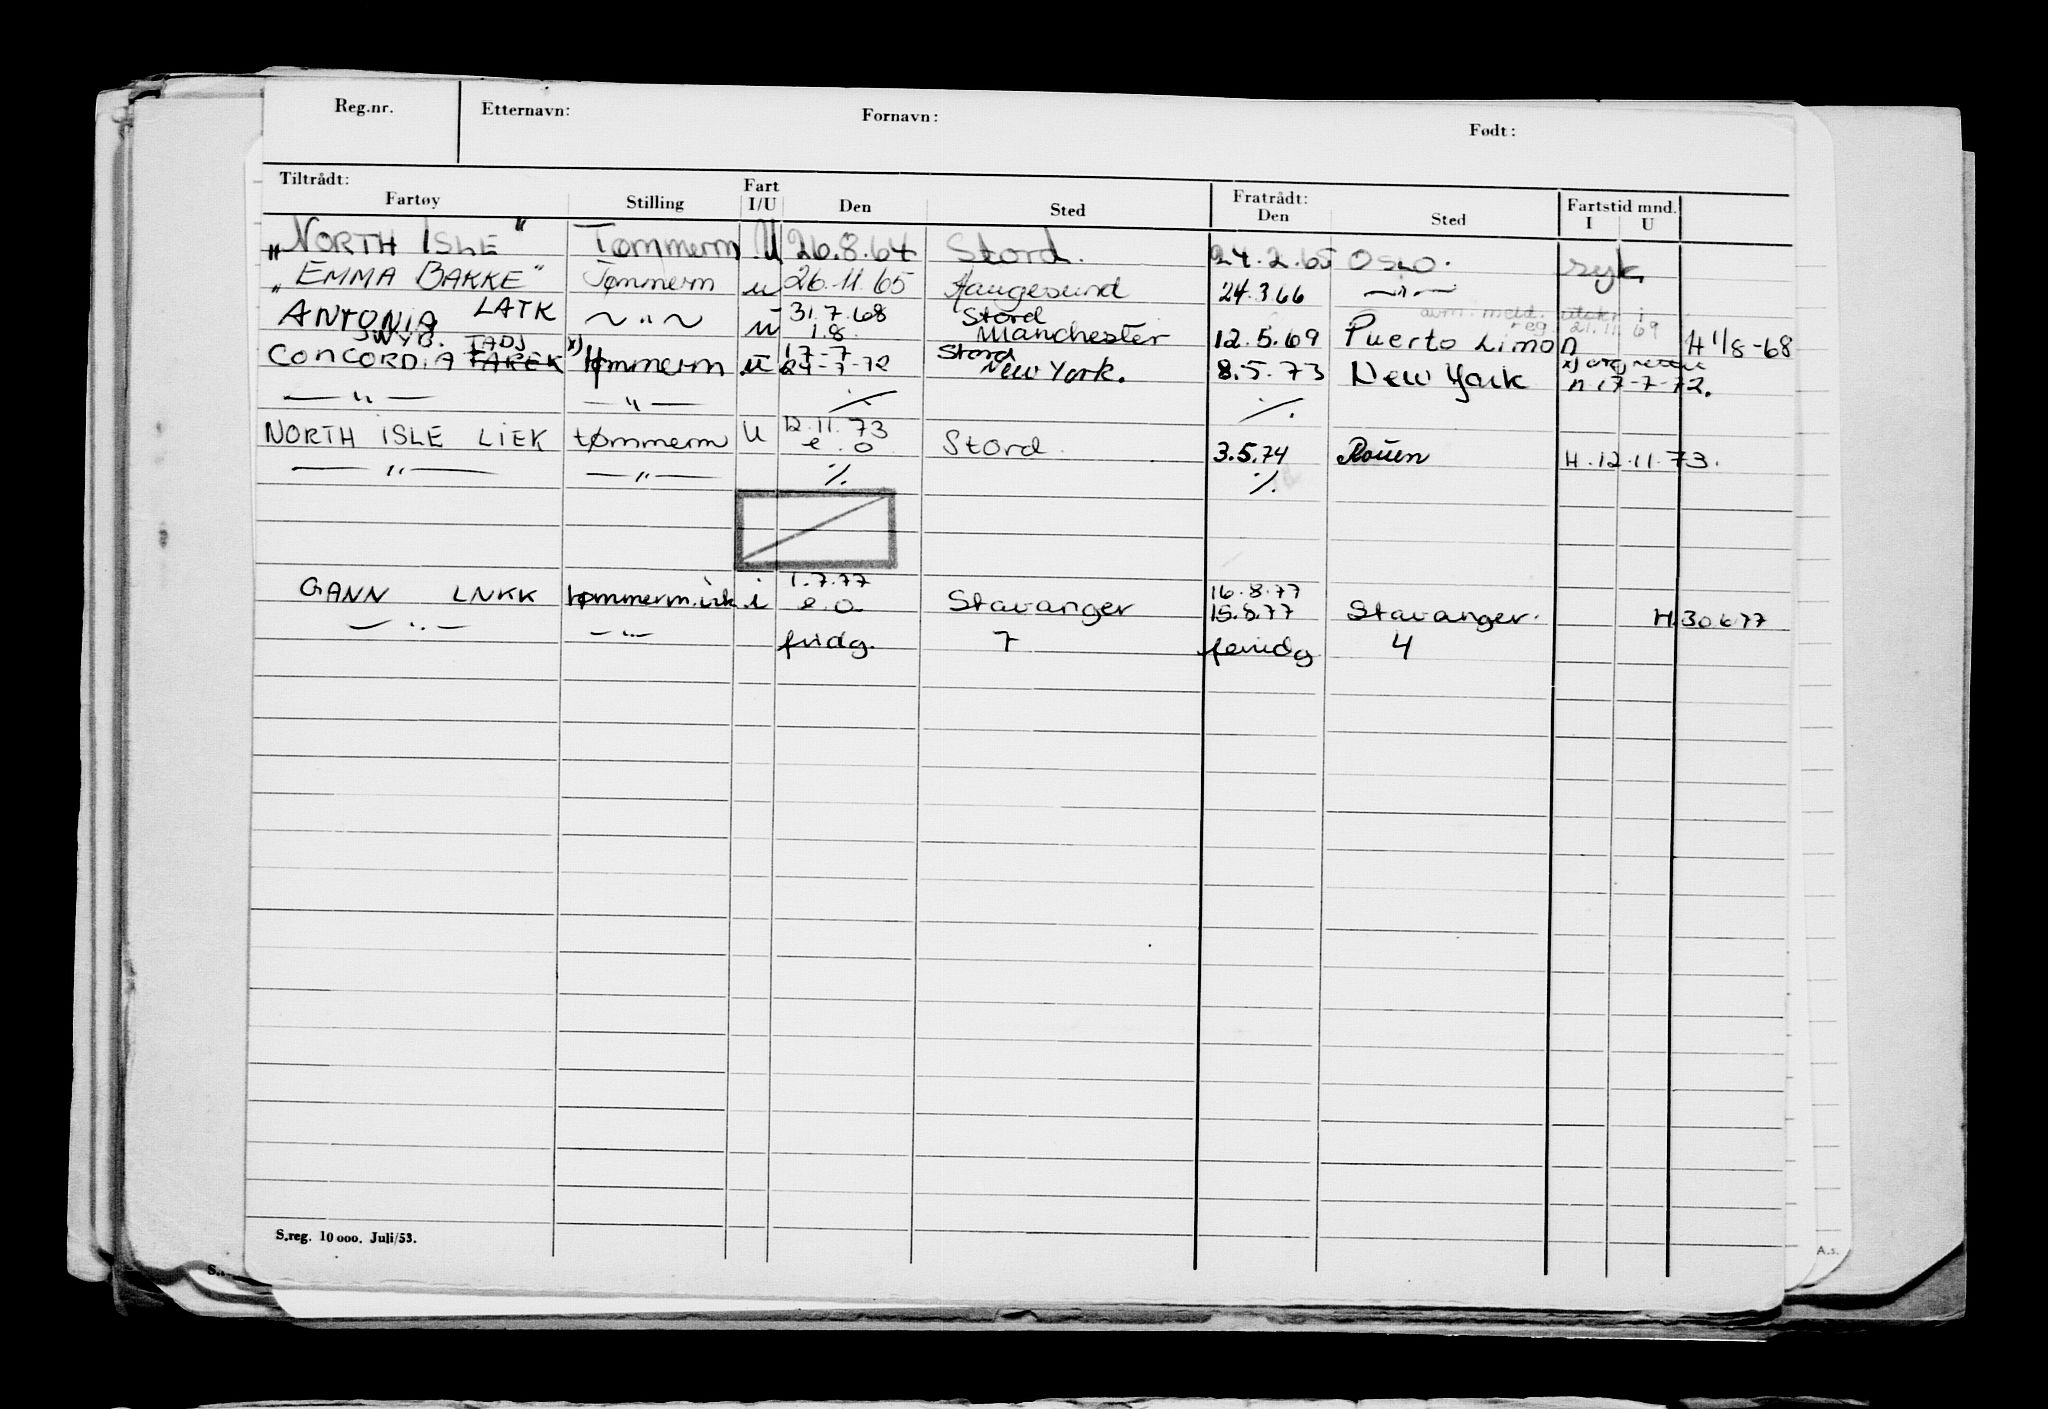 Reg.nr. Etternavn: Fornavn: Født:
Tiltrådt: Fart Fratrådt: Fartstid mnd.
Fartøy Stilling I/U Den Sted Den Sted I U
"NORTH ISLE" Tømmerm U 26.8.64 Stord. 24.2.65 OSLO. syk
"EMMA BAKKE" Tømmerm u 26.11.65 Haugesund 24.3.66 —"—
31.7.68 Stord avm. meld. utskr i
ANTONIA LATK ~ " ~ u 1.8. Manchester 12.5.69 Puerto Limon reg. 21.11.69 H 1/8-68
JWYB. TADJ 17-7 Stord
CONCORDIA FAREK x) tømmerm u 24-7-72 New York. 8.5.73 New York n 17-7-72.
—"— —"— ./. ./.
12.11.73
NORTH ISLE LIEK tømmerm U e.o Stord 3.5.74 Rouen H.12.11.73.
—"— —"— ./. ./.
1.7.77 16.8.77
GANN LNKK tømmerm.vik i e.o Stavanger 15.8.77 Stavanger. H.30.6.77
—"— —"— fridg. 7 feridg 4
S.reg. 10 000. Juli/53.
A.s.